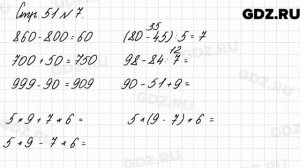 GDZ.RU
Стр. 51 № 7.
860 - 800 = 60
(80 - 45) : 5 = 7
35
700 + 50 = 750
98 - 84 : 7 =
12
999 - 90 = 909
90 - 51 + 9 =
5 * 9 + 7 * 6 =
5 * (9 - 7) * 6 =
5 * 9 - 7 * 6 =
GDZ.RU